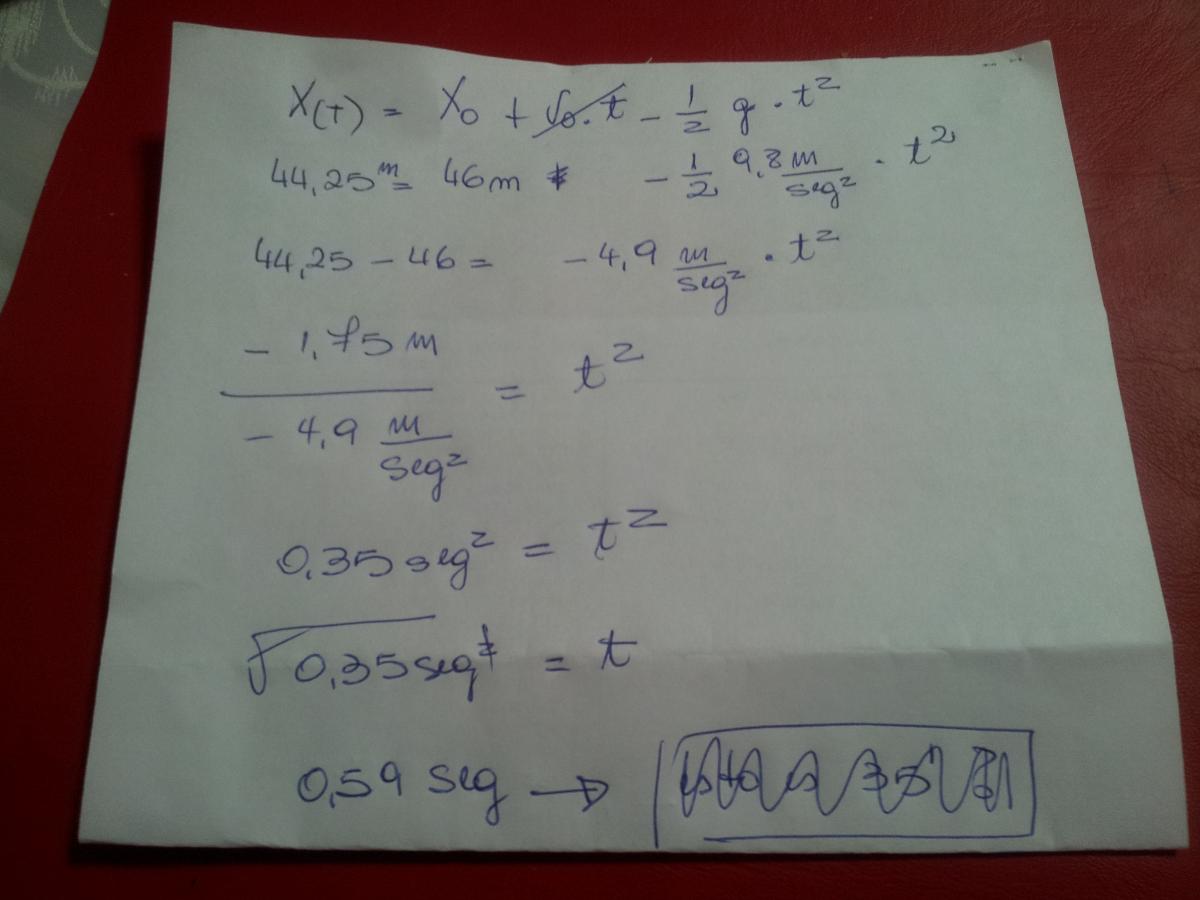 X(T) = X₀ + V₀.t - 1/2 g . t²
44,25m = 46m - 1/2 9,8 m/seg² . t²
44,25 - 46 = - 4,9 m/seg² . t²
- 1,75 m / - 4,9 m/seg² = t²
0,35 seg² = t²
√0,35 seg² = t
0,59 seg →